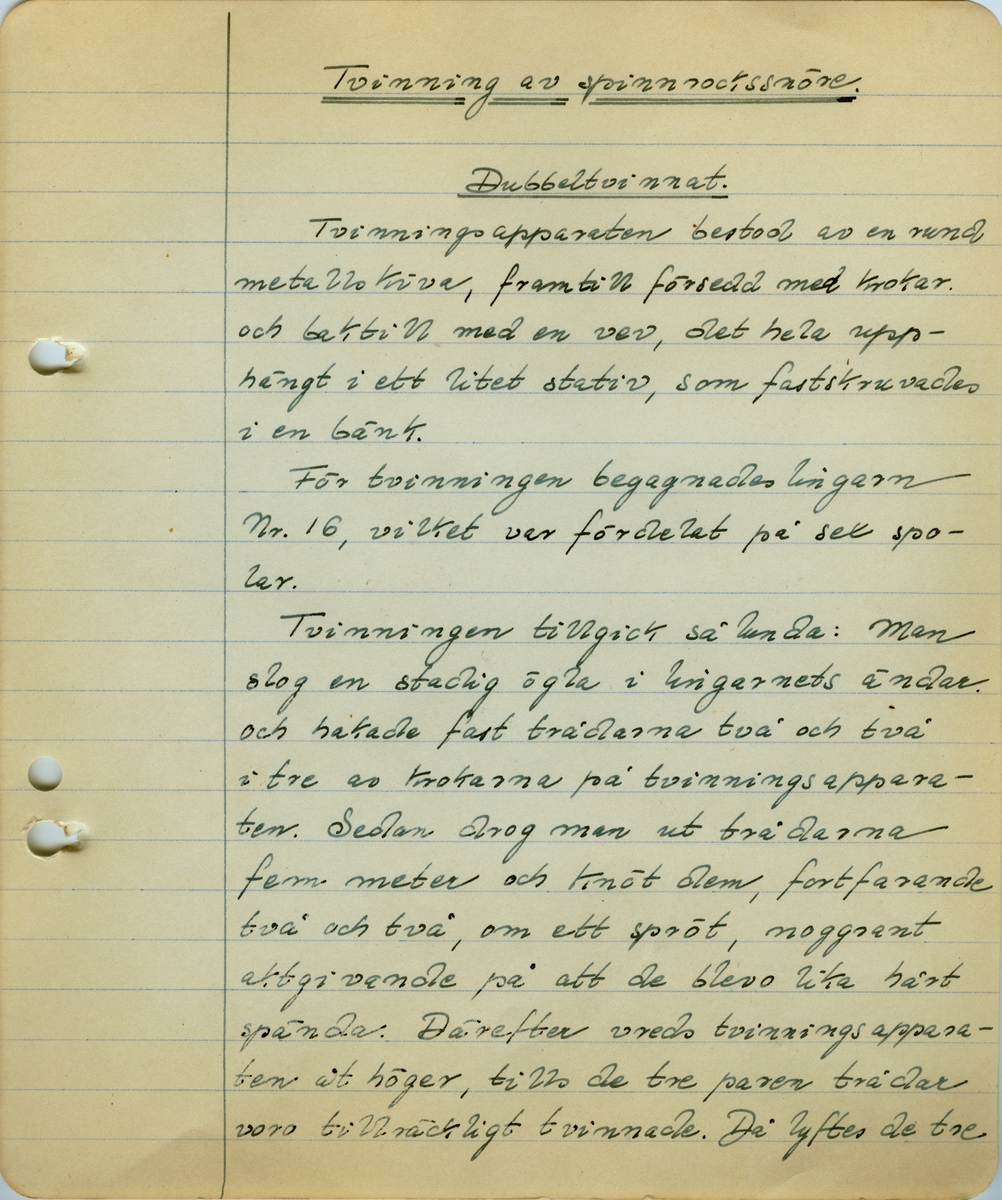 Tvinning av spinnrockssnöre.
Dubbeltvinnat.
Tvinningsapparaten bestod av en rund
metallskiva, framtill försedd med krokar.
och baktill med en vev, det hela upp-
hängt i ett litet stativ, som fastskruvades
i en bänk.
För tvinningen begagnades lingarn
Nr. 16, vilket var fördelat på sex spo-
lar.
Tvinningen tillgick sålunda: Man
slog en stadig ögla i lingarnets ändar.
och hakade fast trådarna två och två
i tre av krokarna på tvinningsappara-
ten. Sedan drog man ut trådarna
fem meter och knöt dem, fortfarande
två och två, om ett spröt, noggrant
aktgivande på att de blevo lika hårt
spända. Därefter vreds tvinningsappara-
ten åt höger, tills de tre paren trådar
voro tillräckligt tvinnade. Då lyftes de tre